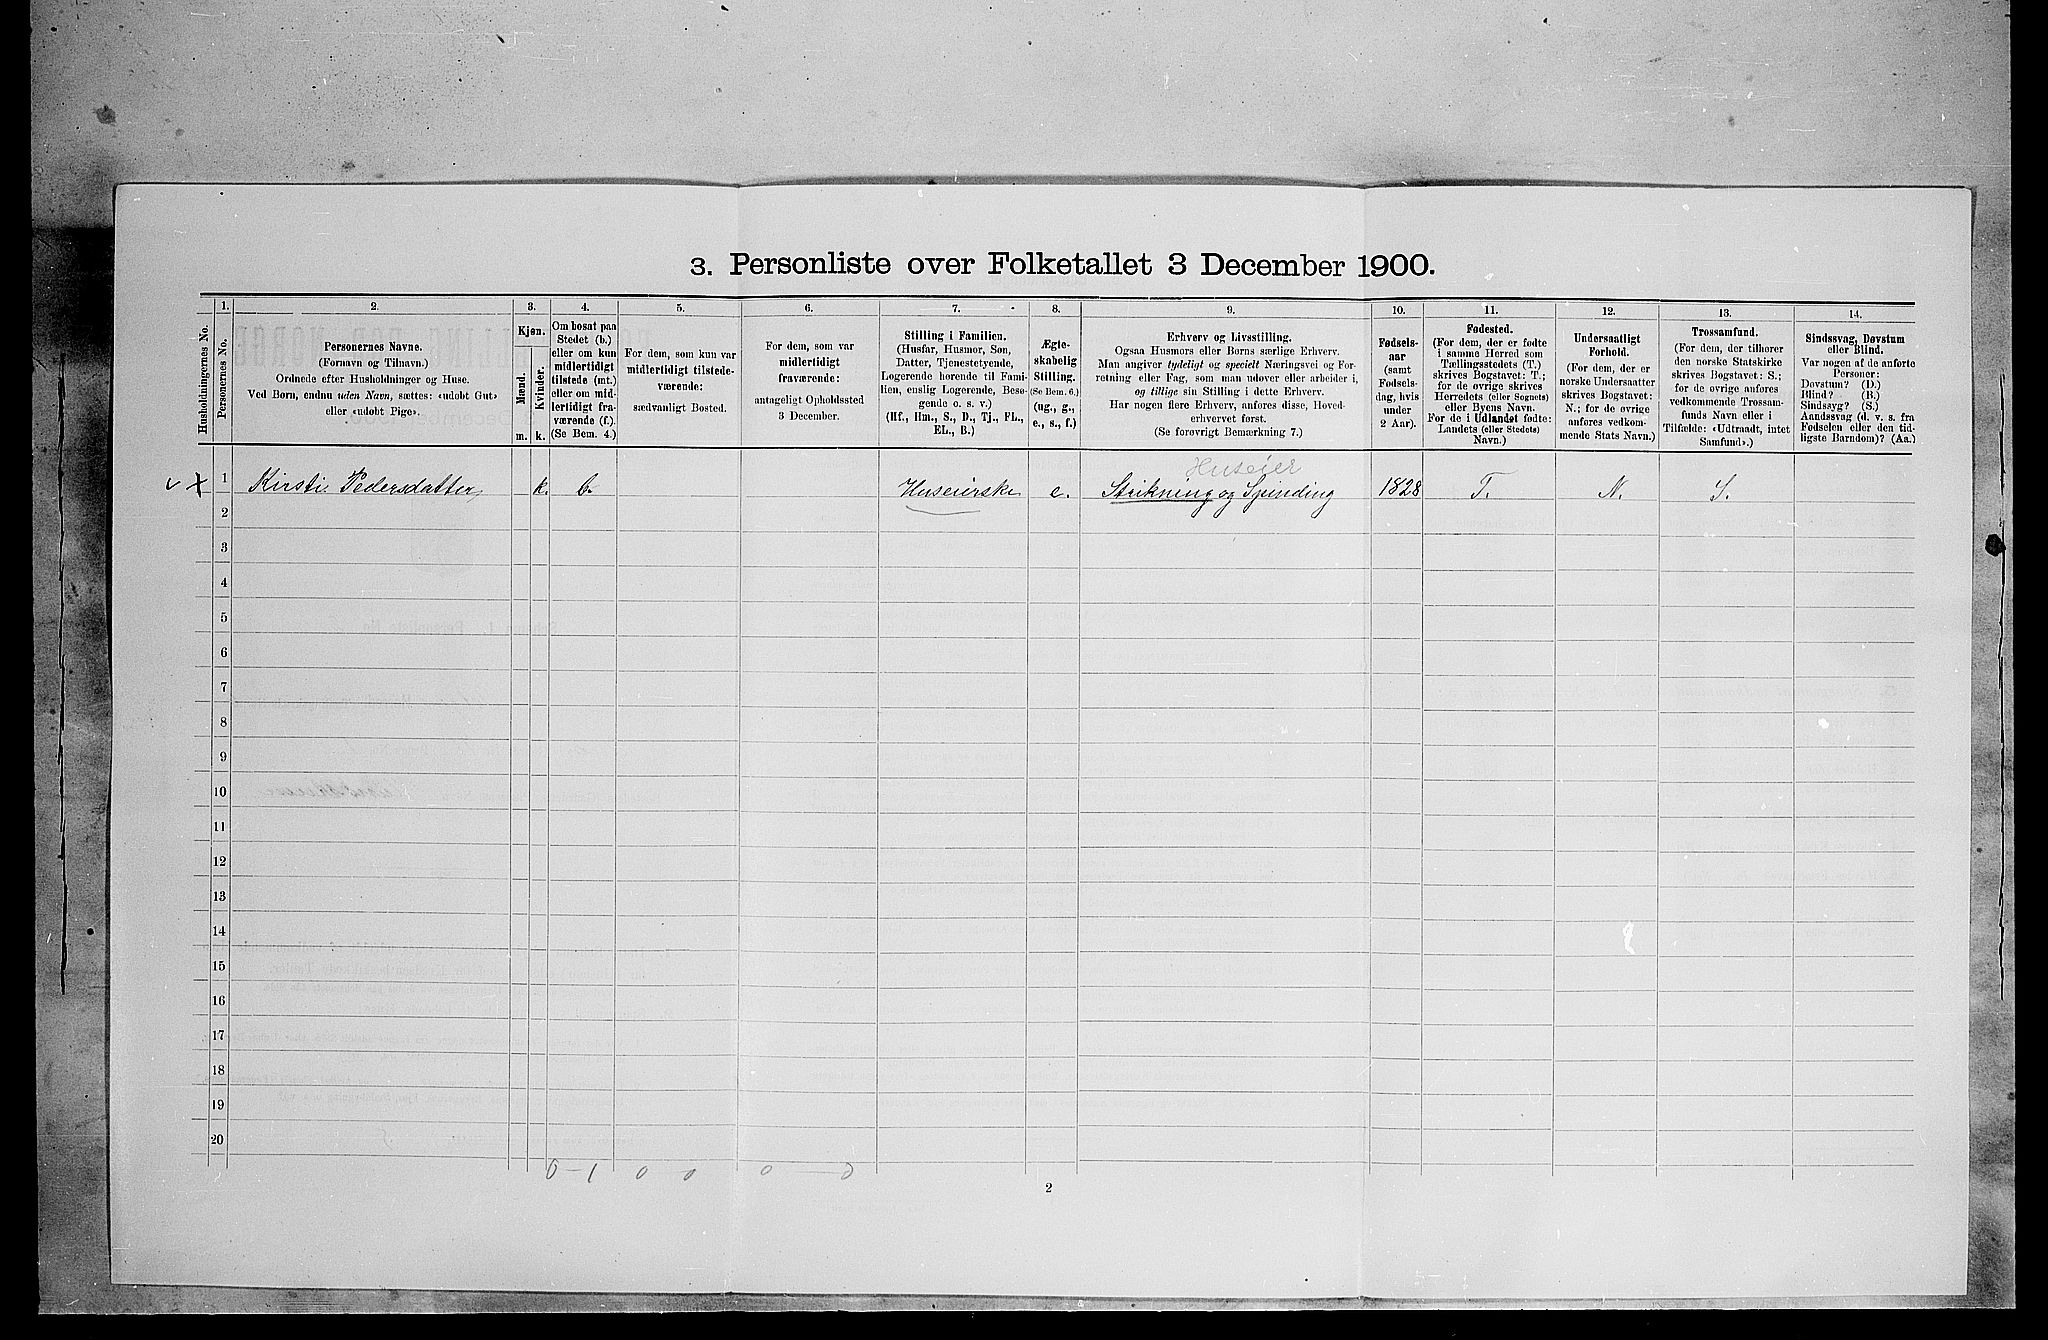 3. Personliste over Folketallet 3 December 1900.
Husholdningernes No.
1.
Personernes No.
2.
Personernes Navne.
(Fornavn og Tilnavn.)
Ordnede efter Husholdninger og Huse.
Ved Børn, endnu uden Navn, sættes: «udøbt Gut»
eller «udøbt Pige».
3.
Kjøn.
Mænd.
Kvinder.
m.
k.
4.
Om bosat paa
Stedet (b.)
eller om kun
midlertidigt
tilstede (mt.)
eller om mid-
lertidigt fra-
værende (f.).
(Se Bem. 4.)
5.
For dem, som kun var
midlertidigt tilstede-
værende:
sædvanligt Bosted.
6.
For dem, som var
midlertidigt
fraværende:
antageligt Opholdssted
3 December.
7.
Stilling i Familien.
(Husfar, Husmor, Søn,
Datter, Tjenestetyende,
Logerende hørende til Fami-
lien, enslig Logerende, Besø-
gende o. s. v.)
(Hf., Hm., S., D., Tj., FL.,
EL., B.)
8.
Ægte-
skabelig
Stilling.
(Se Bem. 6.)
(ug., g.,
e., s., f.)
9.
Erhverv og Livsstilling.
Ogsaa Husmors eller Børns særlige Erhverv.
Man angiver tydeligt og specielt Næringsvei og For-
retning eller Fag, som man udøver eller arbeider i,
og tillige sin Stilling i dette Erhverv.
Har nogen flere Erhverv, anføres disse, Hoved-
erhvervet først.
(Se forøvrigt Bemærkning 7.)
10.
Fødsels-
aar
(samt
Fødsels-
dag, hvis
under
2 Aar).
11.
Fødested.
(For dem, der er fødte
i samme Herred som
Tællingsstedets (T.)
skrives Bogstavet: T.;
for de øvrige skrives
Herredets (eller Sognets)
eller Byens Navn.
For de i Udlandet fødte:
Landets (eller Stedets)
Navn.)
12.
Undersaatligt
Forhold.
(For dem, der er
norske Undersaatter
skrives Bogstavet:
N.; for de øvrige
anføres vedkom-
mende Stats Navn.)
13.
Trossamfund.
(For dem, der tilhører
den norske Statskirke
skrives Bogstavet: S.;
for de øvrige anføres
vedkommende Trossam-
funds Navn eller i
Tilfælde: «Udtraadt, intet
Samfund».)
14.
Sindssvag, Døvstum
eller Blind.
Var nogen af de anførte
Personer:
Døvstum? (D.)
Blind? (B.)
Sindssyg? (S.)
Aandssvag (d. v. s. fra
Fødselen eller den tid-
ligste Barndom)? (Aa.)
Huseier
1 Kirsti Pedersdatter k. b. Huseierske e. Strikning og Spinding 1828 T. N. S.
2
3
4
5
6
7
8
9
10
11
12
13
14
15
16
17
18
19
20
0 – 1 0 0 0 — 0
2